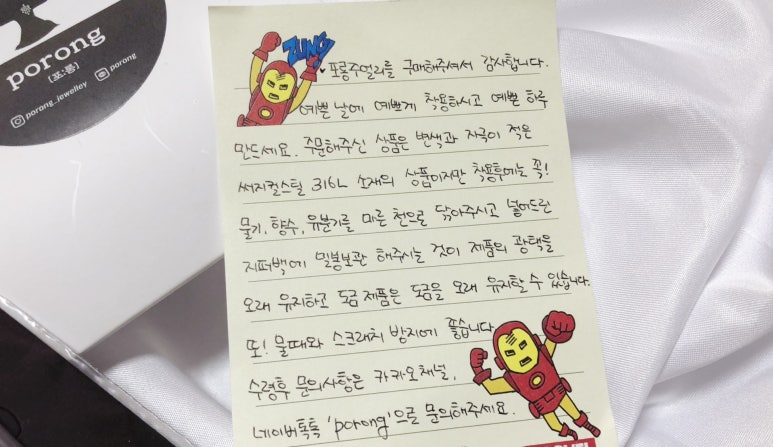 porong
[포:롱]
porong_jewelley porong
ZUNG
포롱주얼리를 구매해주셔서 감사합니다.
예쁜 날에 예쁘게 착용하시고 예쁜 하루
만드세요. 주문해주신 상품은 변색과 자극이 적은
써지컬스틸 316L 소재의 상품이지만 착용후에는 꼭!
물기, 향수, 유분기를 마른 천으로 닦아주시고 넣어드린
지퍼백에 밀봉보관 해주시는 것이 제품의 광택을
오래 유지하고 도금제품은 도금을 오래 유지할 수 있습니다.
또! 물때와 스크래치 방지에 좋습니다
수령후 문의사항은 카카오채널,
네이버톡톡 'porong'으로 문의해주세요.